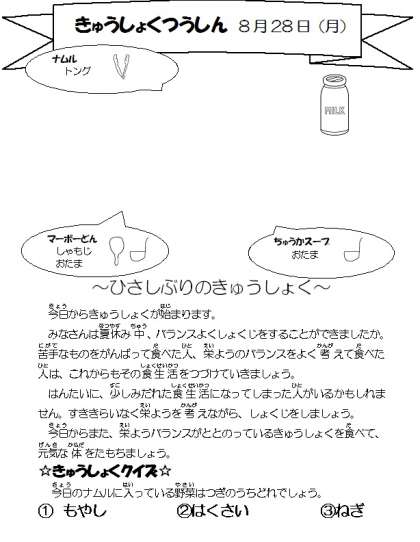 きゅうしょくつうしん 8月28日(月)
ナムル
トング
MILK
マーボーどん
しゃもじ
おたま
ちゅうかスープ
おたま
～ひさしぶりのきゅうしょく～
今日からきゅうしょくが始まります。
みなさんは夏休み中、バランスよくしょくじをすることができましたか。
苦手なものをがんばって食べた人、栄ようのバランスをよく考えて食べた
人は、これからもその食生活をつづけていきましょう。
はんたいに、少しみだれた食生活になってしまった人がいるかもしれま
せん。すききらいなく栄ようを考えながら、しょくじをしましょう。
今日からまた、栄ようバランスがととのっているきゅうしょくを食べて、
元気な体をたもちましょう。
☆きゅうしょくクイズ☆
今日のナムルに入っている野菜はつぎのうちどれでしょう。
① もやし ②はくさい ③ねぎ